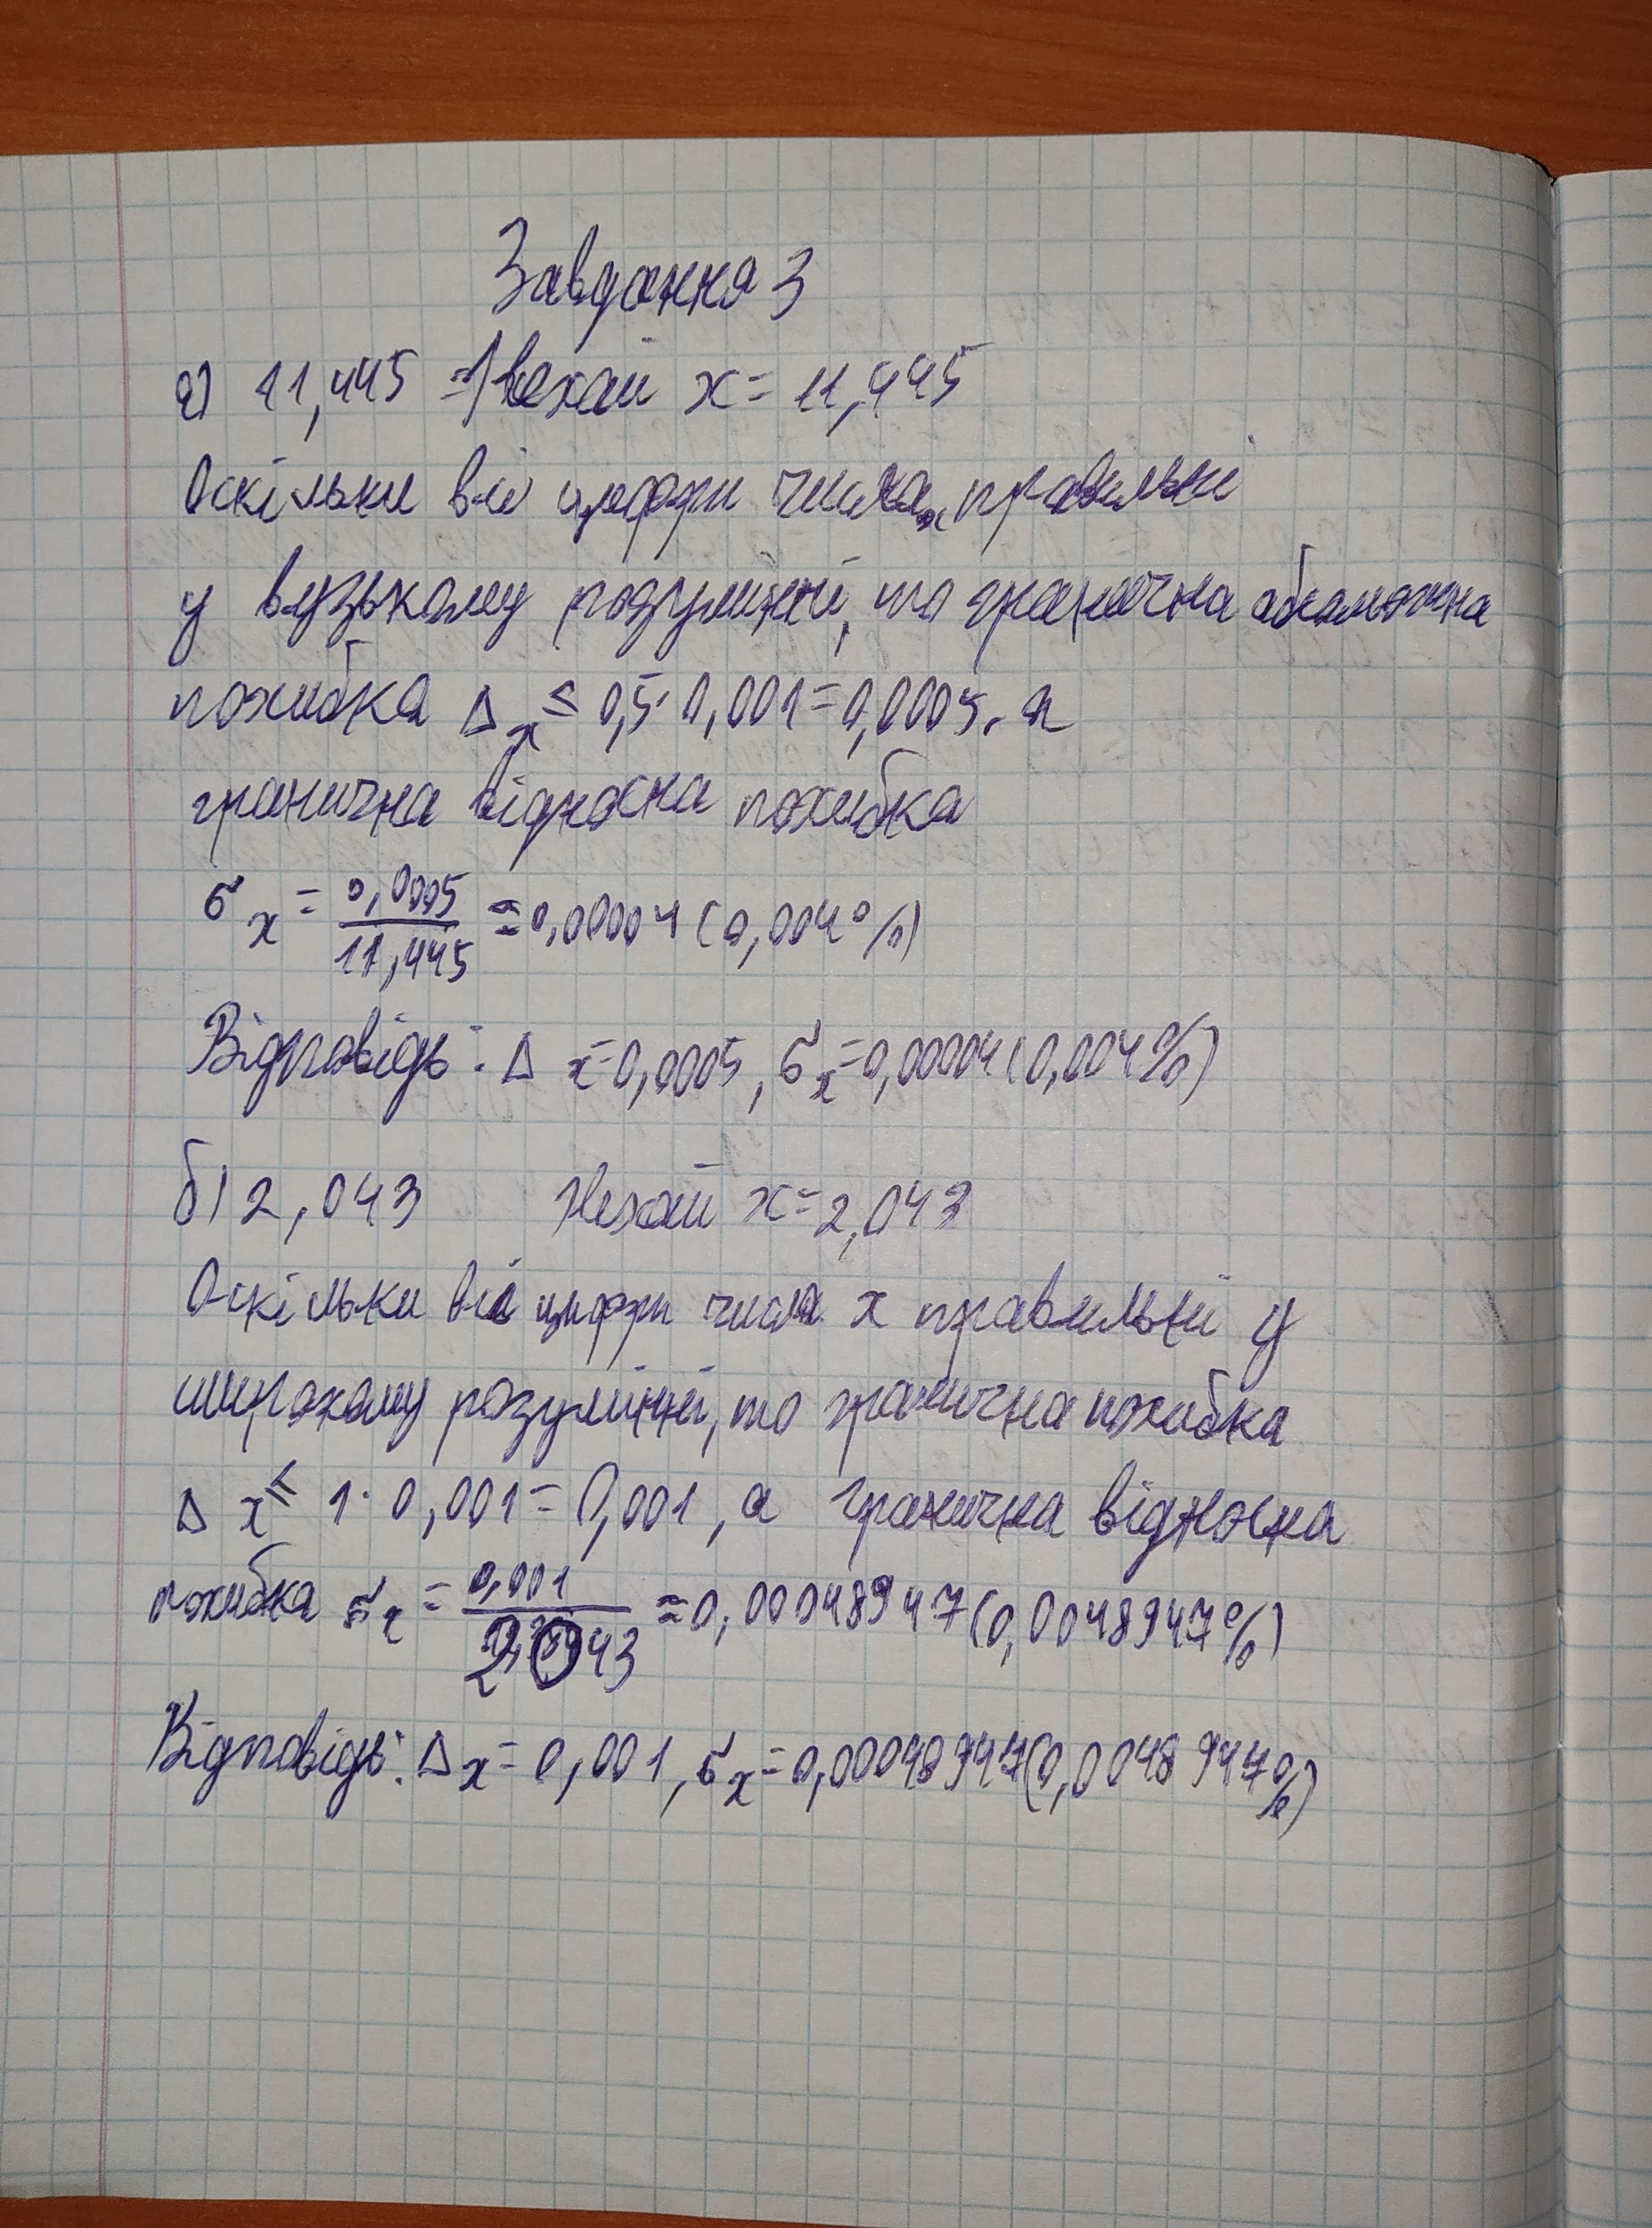 Завдання 3
а) 11,445 => Нехай x = 11,445
Оскільки всі цифри числа x правильні
у вузькому розумінні, то гранична абсолютна
похибка Δx ≤ 0,5·0,001=0,0005, а
гранична відносна похибка
δx = 0,0005/11,445 ≈ 0,00004 (0,004%)
Відповідь: Δx=0,0005, δx=0,00004 (0,004%)
б) 2,043 Нехай x=2,043
Оскільки всі цифри числа x правильні у
широкому розумінні, то гранична похибка
Δx ≤ 1·0,001=0,001, а гранична відносна
похибка δx = 0,001/2,043 ≈0,00048947(0,0048947%)
Відповідь: Δx=0,001, δx=0,00048947(0,0048947%)